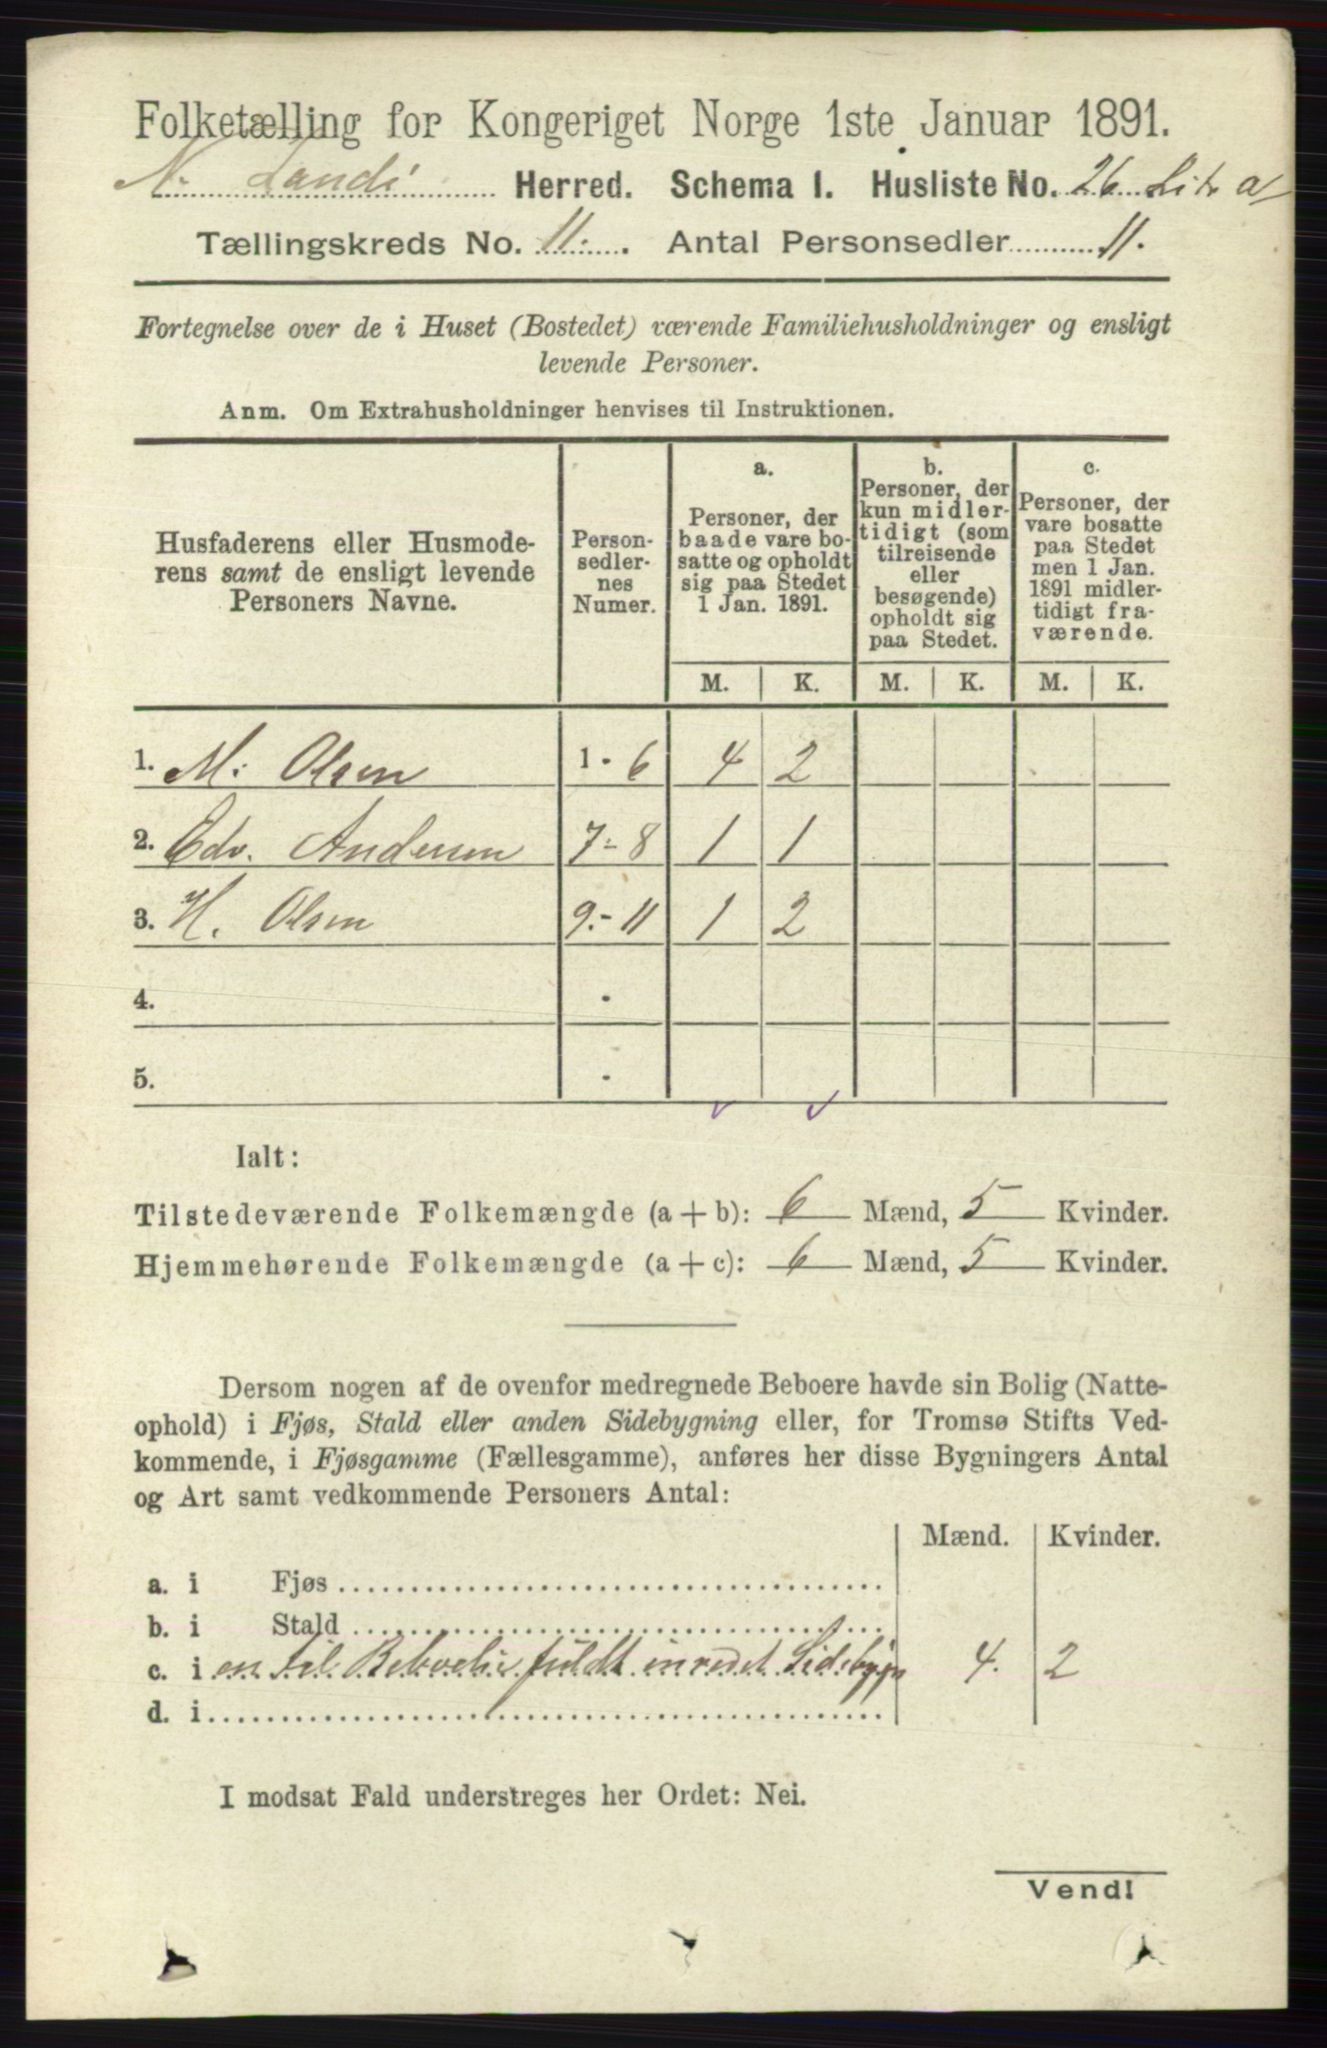 Folketælling for Kongeriget Norge 1ste Januar 1891.
N. Lands Herred. Schema I. Husliste No. 26 Litr a
Tællingskreds No. 11. Antal Personsedler 11.
Fortegnelse over de i Huset (Bostedet) værende Familiehusholdninger og ensligt
levende Personer.
Anm. Om Extrahusholdninger henvises til Instruktionen.
Husfaderens eller Husmode-
rens samt de ensligt levende
Personers Navne.
Person-
sedler-
nes
Numer.
a.
Personer, der
baade vare bo-
satte og opholdt
sig paa Stedet
1 Jan. 1891.
b.
Personer, der
kun midler-
tidigt (som
tilreisende
eller
besøgende)
opholdt sig
paa Stedet.
c.
Personer, der
vare bosatte
paa Stedet
men 1 Jan.
1891 midler-
tidigt fra-
værende.
M. K. M. K. M. K.
1. M. Olsen 1 - 6 4 2
2. Edv. Andersen 7 - 8 1 1
3. H. Olsen 9. - 11 1 2
4. -
5. -
Ialt:
Tilstedeværende Folkemængde (a + b): 6 Mænd, 5 Kvinder.
Hjemmehørende Folkemængde (a + c): 6 Mænd, 5 Kvinder.
Dersom nogen af de ovenfor medregnede Beboere havde sin Bolig (Natte-
ophold) i Fjøs, Stald eller anden Sidebygning eller, for Tromsø Stifts Ved-
kommende, i Fjøsgamme (Fællesgamme), anføres her disse Bygningers Antal
og Art samt vedkommende Personers Antal:
Mænd. Kvinder.
a. i Fjøs
b. i Stald
c. i en til Beboelse fuldt inredet Sidebygn 4. 2
d. i
I modsat Fald understreges her Ordet: Nei.
Vend!